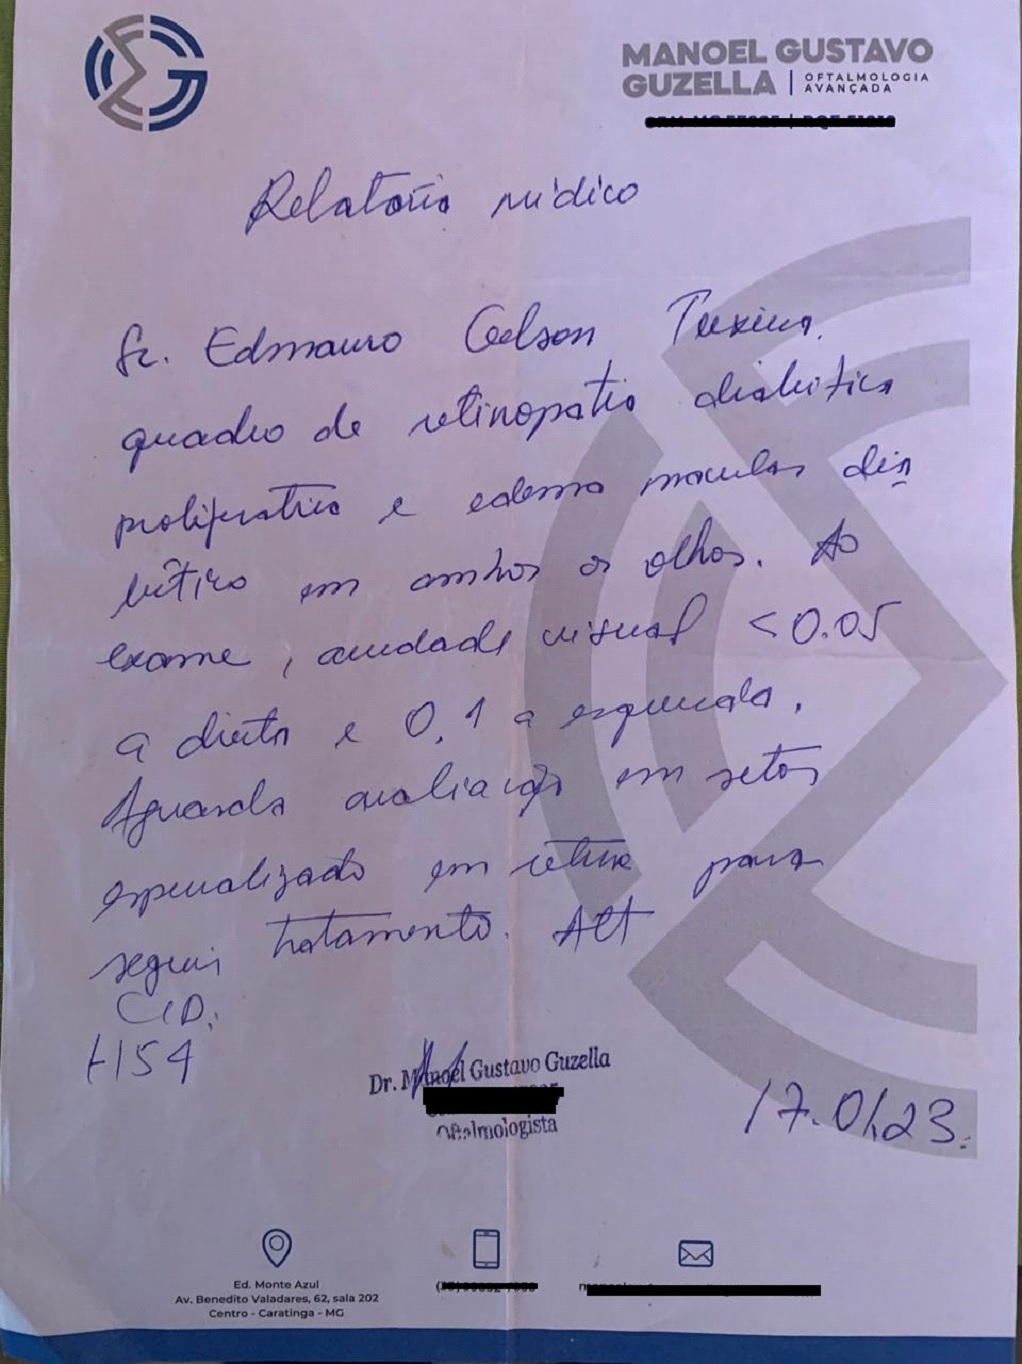 MANOEL GUSTAVO
GUZELLA | OFTALMOLOGIA
AVANÇADA
Relatório médico
Sr. Edmauro Gelson Teixeira.
quadro de retinopatia diabética
proliferativa e edema macular dia
bético em ambos os olhos. Ao
exame, acuidade visual < 0.05
a direita e 0,1 a esquerda.
Aguarda avaliação em setor
especializado em retina para
seguir tratamento. Att
CID:
H54
Dr. Manoel Gustavo Guzella
Oftalmologista
17.01.23.
Ed. Monte Azul
Av. Benedito Valadares, 62, sala 202
Centro - Caratinga - MG